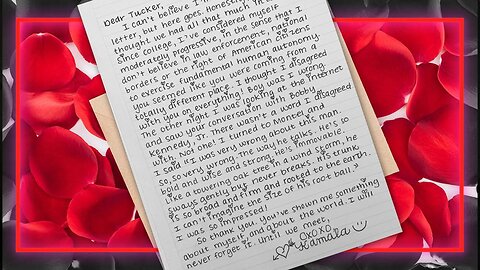 Dear Tucker,
I can't believe I'm
letter, but here goes, honestly
thought we had all that much in
since college, I've considered myself
moderately progressive, in the sense that I
don't believe in law enforcement, national
borders or the right of American citizens
to exercise fundamental human autonomy.
you seemed like you were coming from a
totally different place. I thought I disagreed
with you on everything! Boy was I wrong.
The other night I was looking at the internet
and saw your conversation with Bobby
Kennedy, Jr. There wasn't a word I disagreed
with. Not one! I turned to Montel and
I said "I was very wrong about this man.
So, so very wrong. The way he talks. He's so
bold and wise and strong. He's immovable.
Like a towering oak tree in a wind storm, he
sways gently but never breaks. His trunk,
is so broad and firm and rooted to the earth.
I can't imagine the size of his root ball."
I was so impressed!
So thank you. You've shown me something
about myself, and about the world. I will
never forget it. Until we meet,
OXOXO
Kamala